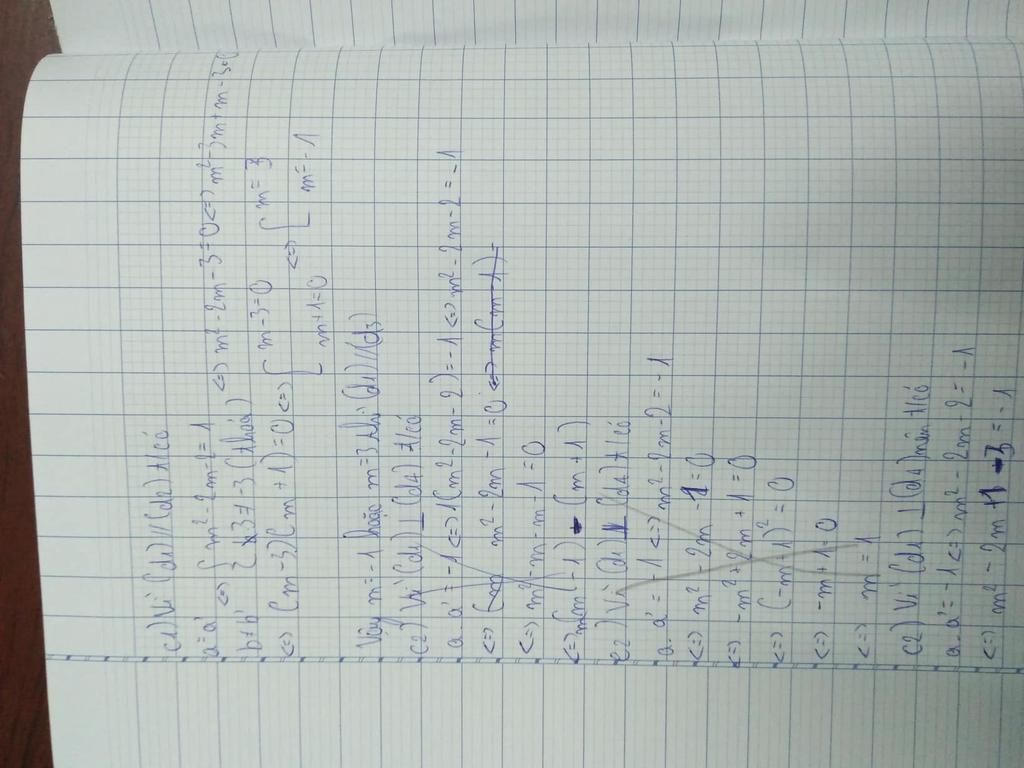 c1) Vì (d1) // (d2) ta có
a = a' <=> { m² - 2m - 2 = 1 <=> m² - 2m - 3 = 0 <=> m² - 3m + m - 3 = 0
b ≠ b' { 3 ≠ -3 (thoả)
<=> (m - 3)(m + 1) = 0 <=> [ m - 3 = 0 <=> [ m = 3
[ m + 1 = 0 [ m = -1
Vậy m = -1 hoặc m = 3 thì (d1) // (d3)
c2) Vì (d1) ⊥ (d4) ta có
a. a' = -1 <=> 1(m² - 2m - 2) = -1 <=> m² - 2m - 2 = -1
<=> m² - 2m - 1 = 0 <=> m(m - 1) =
<=> m² - m - m - 1 = 0
<=> m(m - 1) - (m + 1)
c2) Vì (d1) ⊥ (d4) ta có
a. a' = -1 <=> m² - 2m - 2 = -1
<=> m² - 2m - 1 = 0
<=> -m² + 2m + 1 = 0
<=> (-m + 1)² = 0
<=> -m + 1 = 0
<=> m = 1
c2) Vì (d1) ⊥ (d4) nên ta có
a. a' = -1 <=> m² - 2m - 2 = -1
<=> m² - 2m + 1 - 3 = -1